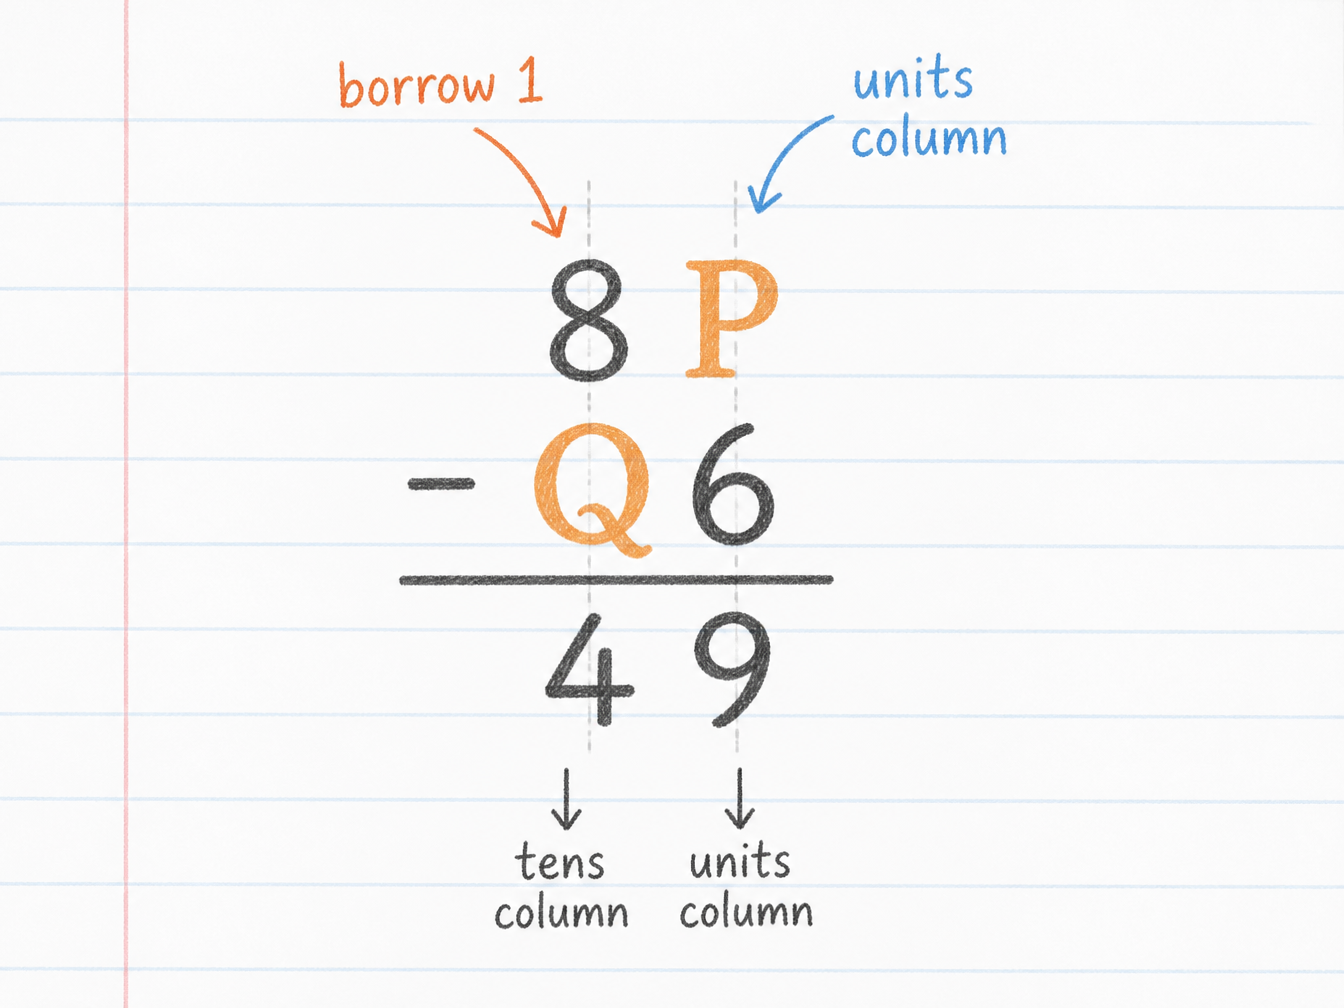 borrow 1
units
column
8 P
- Q 6
4 9
tens
column
units
column